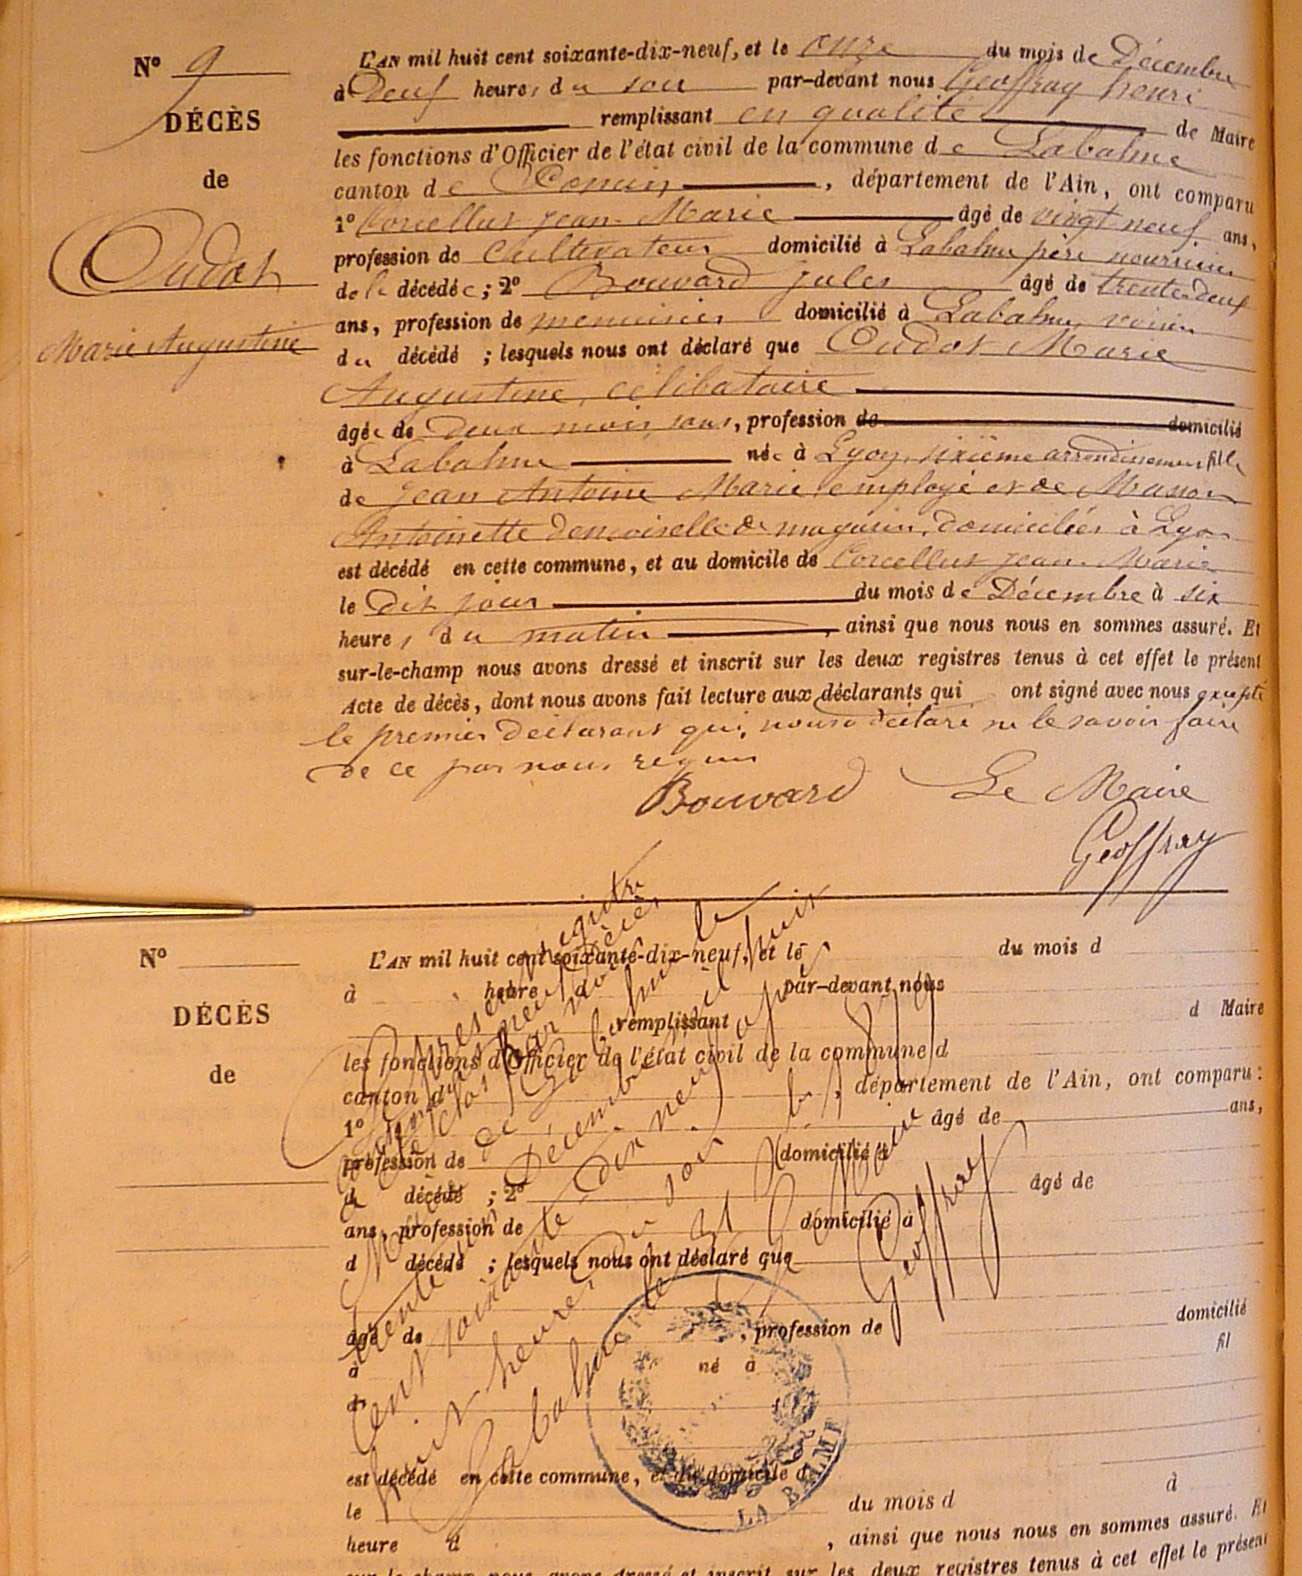 N° 9
DÉCÈS
de
Oudot
Marie Augustine
L'AN mil huit cent soixante-dix-neuf, et le onze du mois de Décembre
à Deux heures du soir par-devant nous Geoffray henri
remplissant en qualité de Maire
les fonctions d'Officier de l'état civil de la commune de Labalme
canton de Poncin, département de l'Ain, ont comparu
1° Corcellut jean-Marie âgé de vingt neuf ans,
profession de cultivateur domicilié à Labalme père nourricier
de la décédée; 2° Bouvard jules âgé de trente-deux
ans, profession de menuisier domicilié à Labalme, voisin
du décédé ; lesquels nous ont déclaré que Oudot Marie
Augustine, célibataire
âgée de deux mois, sans, profession de domicilié
à Labalme née à Lyon, sixième arrondissement fille
de jean Antoine Marie employé et de Masson
Antoinette demoiselle de magasin, domiciliés à Lyon
est décédé en cette commune, et au domicile de Corcellut jean-Marie
le dit jour du mois de Décembre à six
heures du matin, ainsi que nous nous en sommes assuré. Et
sur-le-champ nous avons dressé et inscrit sur les deux registres tenus à cet effet le présent
Acte de décès, dont nous avons fait lecture aux déclarants qui ont signé avec nous excepté
le premier déclarant qui, nous a déclaré ne le savoir faire
de ce par nous requis
Bouvard Le Maire
Geoffray
N°
DÉCÈS
de
L'AN mil huit cent soixante-dix-neuf, et le du mois d
à heure d par-devant nous
remplissant d Maire
les fonctions d'Officier de l'état civil de la commune d
canton d , département de l'Ain, ont comparu :
1° âgé de ans,
profession de domicilié à
d décédé ; 2° âgé de
ans, profession de domicilié à
d décédé ; lesquels nous ont déclaré que
âgé de , profession de domicilié
à né à fil
d
est décédé en cette commune, et au domicile d
le du mois d à
heure d , ainsi que nous nous en sommes assuré. Et
sur-le-champ nous avons dressé et inscrit sur les deux registres tenus à cet effet le présent
Le présent registre
de Labalme le
trente un Décembre mil huit
cent soixante Dix neuf
huit heures du soir
Labalme le 31 Xbre 1879
Le Maire
Geoffray
LA BALME